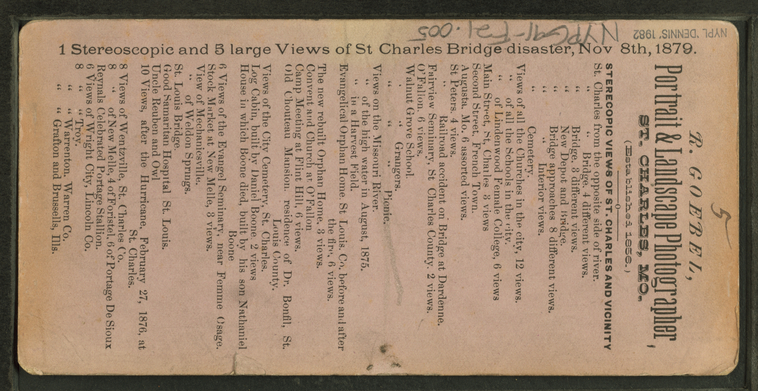 NYPL DENNIS 1982
NYPG91-F21
.005
1 Stereoscopic and 5 large Views of St Charles Bridge disaster, Nov 8th, 1879.
5
R. GOEBEL,
Portrait & Landscape Photographer,
ST. CHARLES, MO.
(Established 1856.)
STEREOPIC VIEWS OF ST. CHARLES AND VICINITY
St. Charles from the opposite side of river.
„ „ Bridge, 4 different views.
„ „ Bridge, 3 different views.
„ „ New Depot and Bridge.
„ „ Bridge approaches 8 different views.
„ „ „ Interior views.
„ „ Cemetery.
Views of all the Churches in the city, 12 views.
„ of all the Schools in the city.
„ of Lindenwood Female College, 6 views
Main Street, St. Charles 3 views
Second Street, French Town.
Augusta, Mo. 6 assorted views.
St Peters, 4 views.
„ „ Railroad accident on Bridge at Dardenne.
Fairview Seminary, St. Charles County. 2 views.
O'Fallon, 6 views.
Walnut Grove School.
„ „ Grangers.
„ „ Picnic.
Views of the Missouri River.
„ of the high water, in August, 1875.
„ is a Harvest Field.
Evangelical Orphan Home, St. Louis, Co. before and after
the fire, 6 views.
The new rebuilt Orphan Home, 3 views.
Convent and Church at O'Fallon.
Camp Meeting at Flint Hill, 6 views.
Old Chouteau Mansion, residence of Dr. Bonfil, St.
Louis County.
Views of the City Cemetery, St. Charles.
Log Cabin, built by Daniel Boone 2 views
House in which Boone died, built by his son Nathaniel
Boone
6 Views of the Evangel Seminary, near Femme Osage.
Stock Market at New Melle, 3 views.
View of Mechanicsville.
„ of Weldon Springs.
St. Louis Bridge.
Good Samaritan Hospital St. Louis.
Uncle Reuben and Owl.
10 Views, after the Hurricane, February 27, 1876, at
St. Charles.
8 Views of Wentzville, St. Charles Co.
8 „ of New Melle, 4 of Cristel, 6 of Portage De Sioux
Reynals Celebrated Portage Stallion.
6 Views of Wright City, Lincoln Co.
8 „ „ Troy, „
8 „ „ Warrenton, Warren Co.
„ „ Grafton and Brussells, Ills.